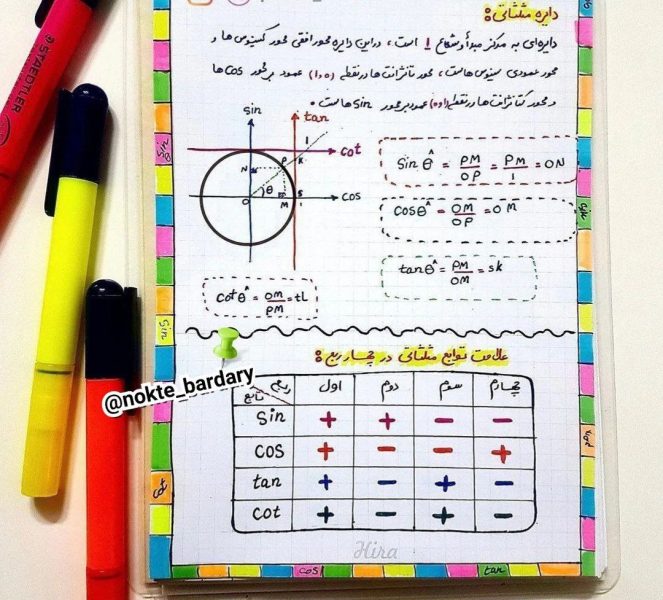 STAEDTLER
دایره مثلثاتی:
دایره‌ای به مرکز مبدأ و شعاع 1 است، در این دایره محور افقی محور کسینوس ها و
محور عمودی سینوس هاست، محور تانژانت ها در نقطه‌ی (1,0) عمود بر محور cos ها
و محور کتانژانت ها در نقطه‌ی (0,1) عمود بر محور sin هاست.
sin
tan
cot
cos
l
P
K
N
θ
O
M
S
1
sin θ̂ = PM/OP = PM/1 = ON
cos θ̂ = OM/OP = OM
tan θ̂ = PM/OM = SK
cot θ̂ = OM/PM = tL
علامت توابع مثلثاتی در چهار ربع:
ربع تابع اول دوم سوم چهارم
sin + + − −
cos + − − +
tan + − + −
cot + − + −
@nokte_bardary
Hira
sin
cot
cos
tan